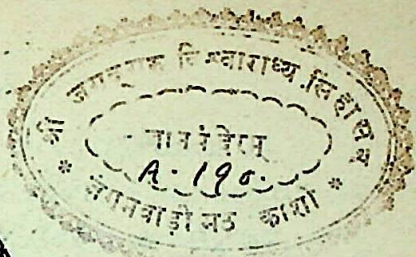 श्री जगद्गुरु विश्वाराध्य सिंहासन
ज्ञानमंदिरम्
A. 190.
* जंगमवाड़ी मठ काशी *